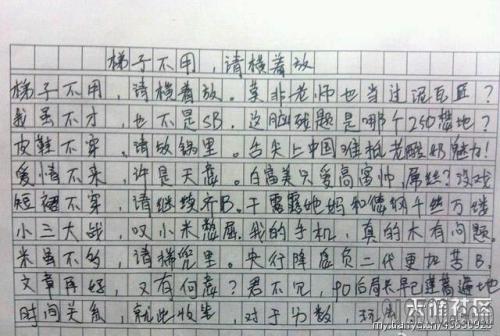 梯子不用，请横着放
梯子不用，请横着放。莫非老师也当过泥瓦匠？
我虽不才，也不是SB。这脑残题是哪个250출地？
皮鞋不穿，请放锅里。舌尖上中国难抵老酸奶魅力！
爱情不来，许是天意。白富美只爱高富帅，屌丝？没戏
短裙不穿，请继续齐B。干露露她妈和俺的千丝万缕
小三大战，叹小米憋屈。我的手机，真的木有问题
米虽不多，请梯兜里。央行降息负二代更加苦B。
文章再好，又有何意？君不见，90后局长早已遍地
时间关系，就此收笔。对于分数，
天涯社区